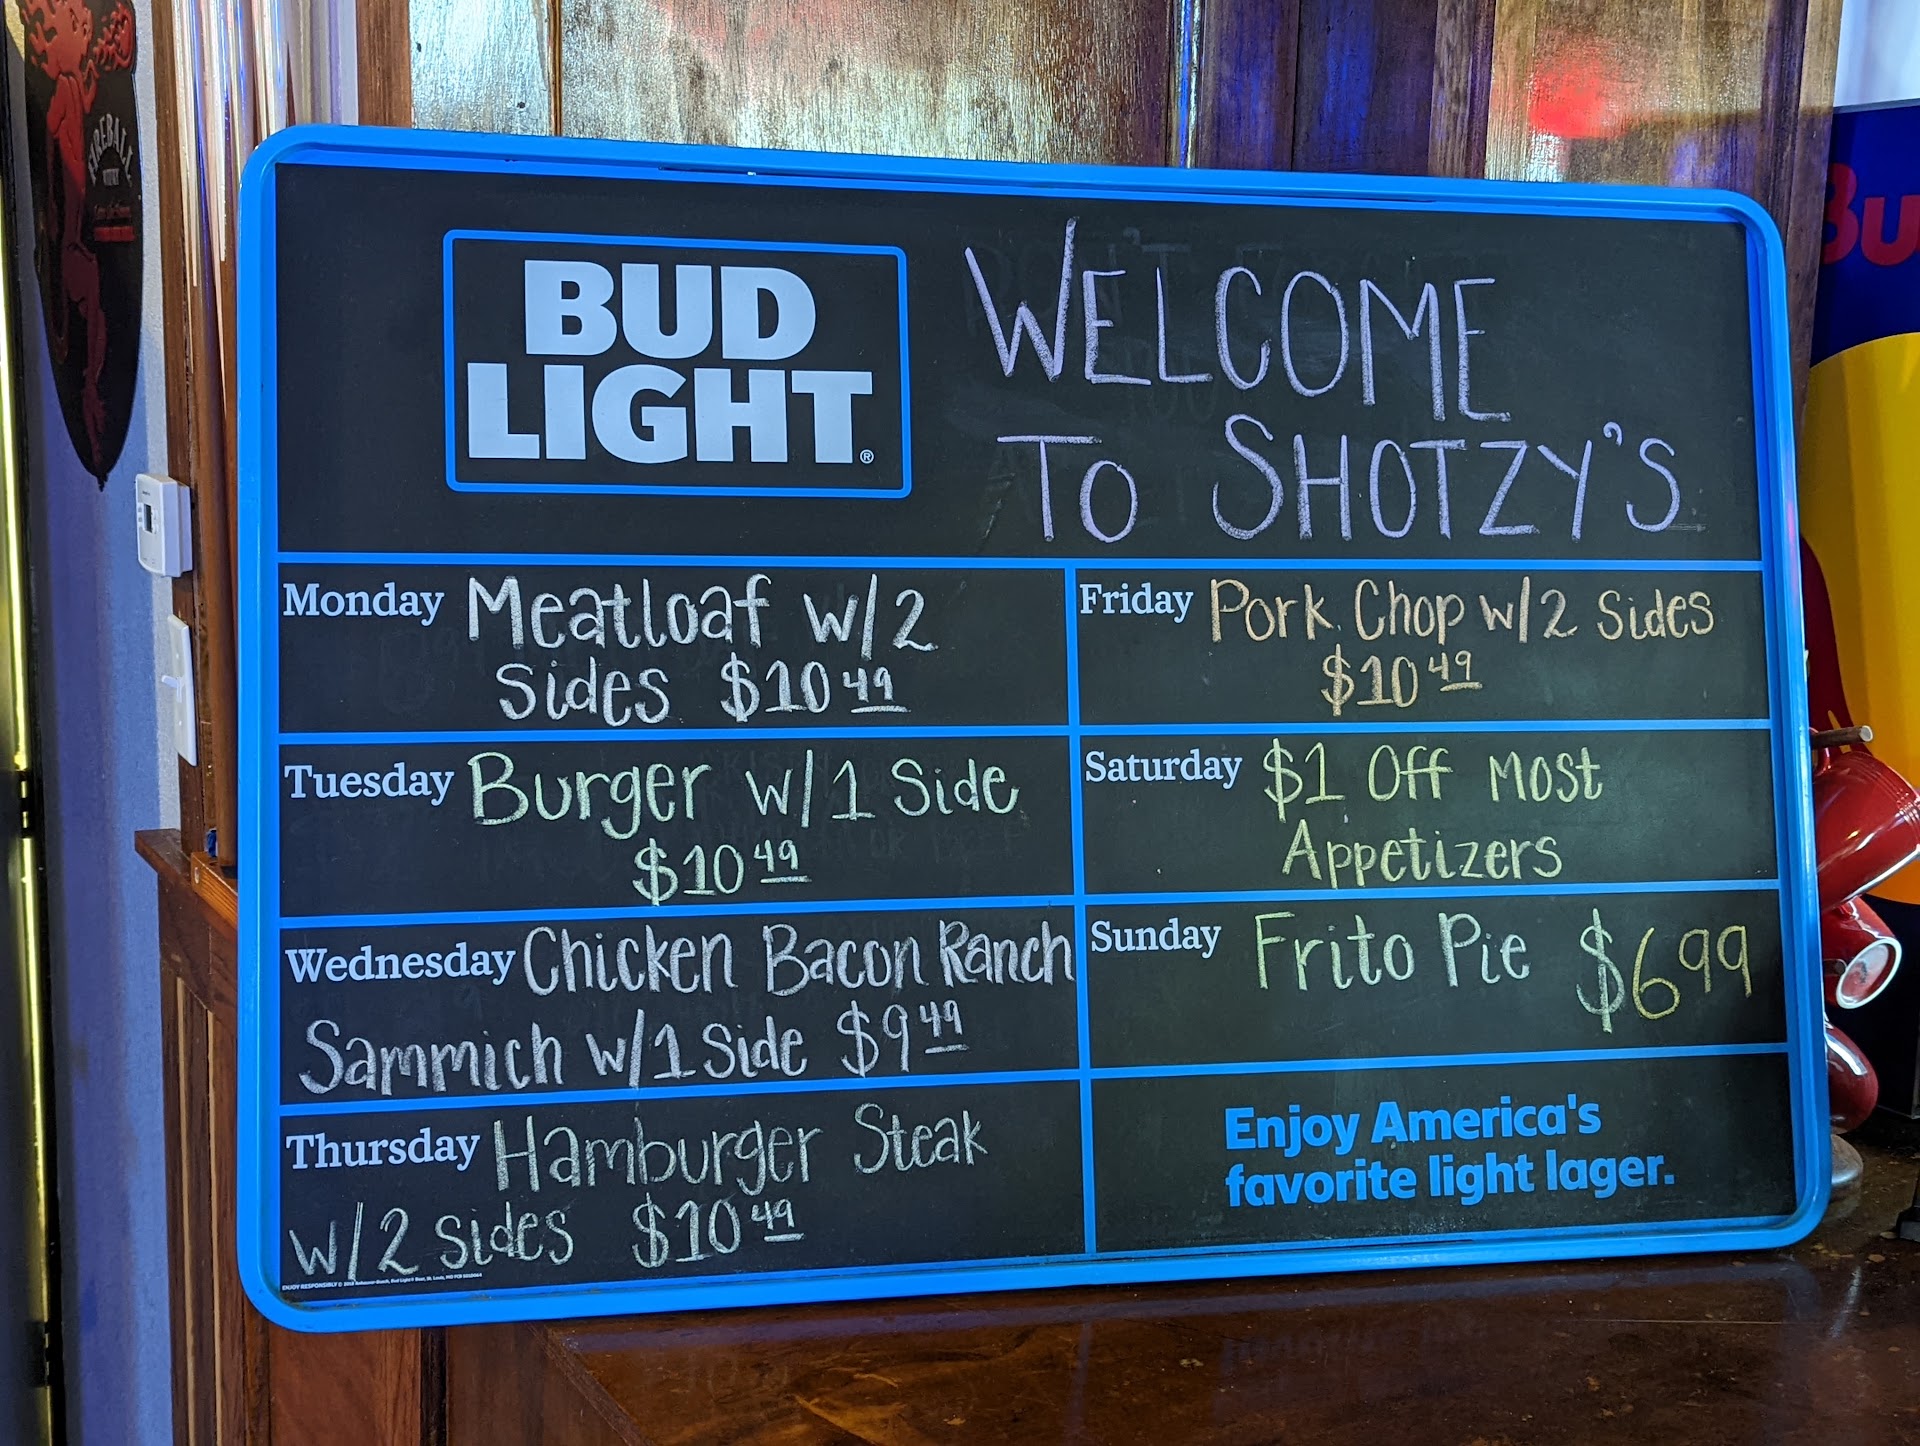 FIREBALL
BUD
LIGHT®
WELCOME
TO SHOTZY'S
Monday Meatloaf w/2
Sides $10 49
Tuesday Burger w/1 Side
$10 49
Wednesday Chicken Bacon Ranch
Sammich w/1 Side $9 49
Thursday Hamburger Steak
w/2 sides $10 49
Friday Pork Chop w/2 Sides
$10 49
Saturday $1 Off Most
Appetizers
Sunday Frito Pie $6 99
Enjoy America's
favorite light lager.
Bu